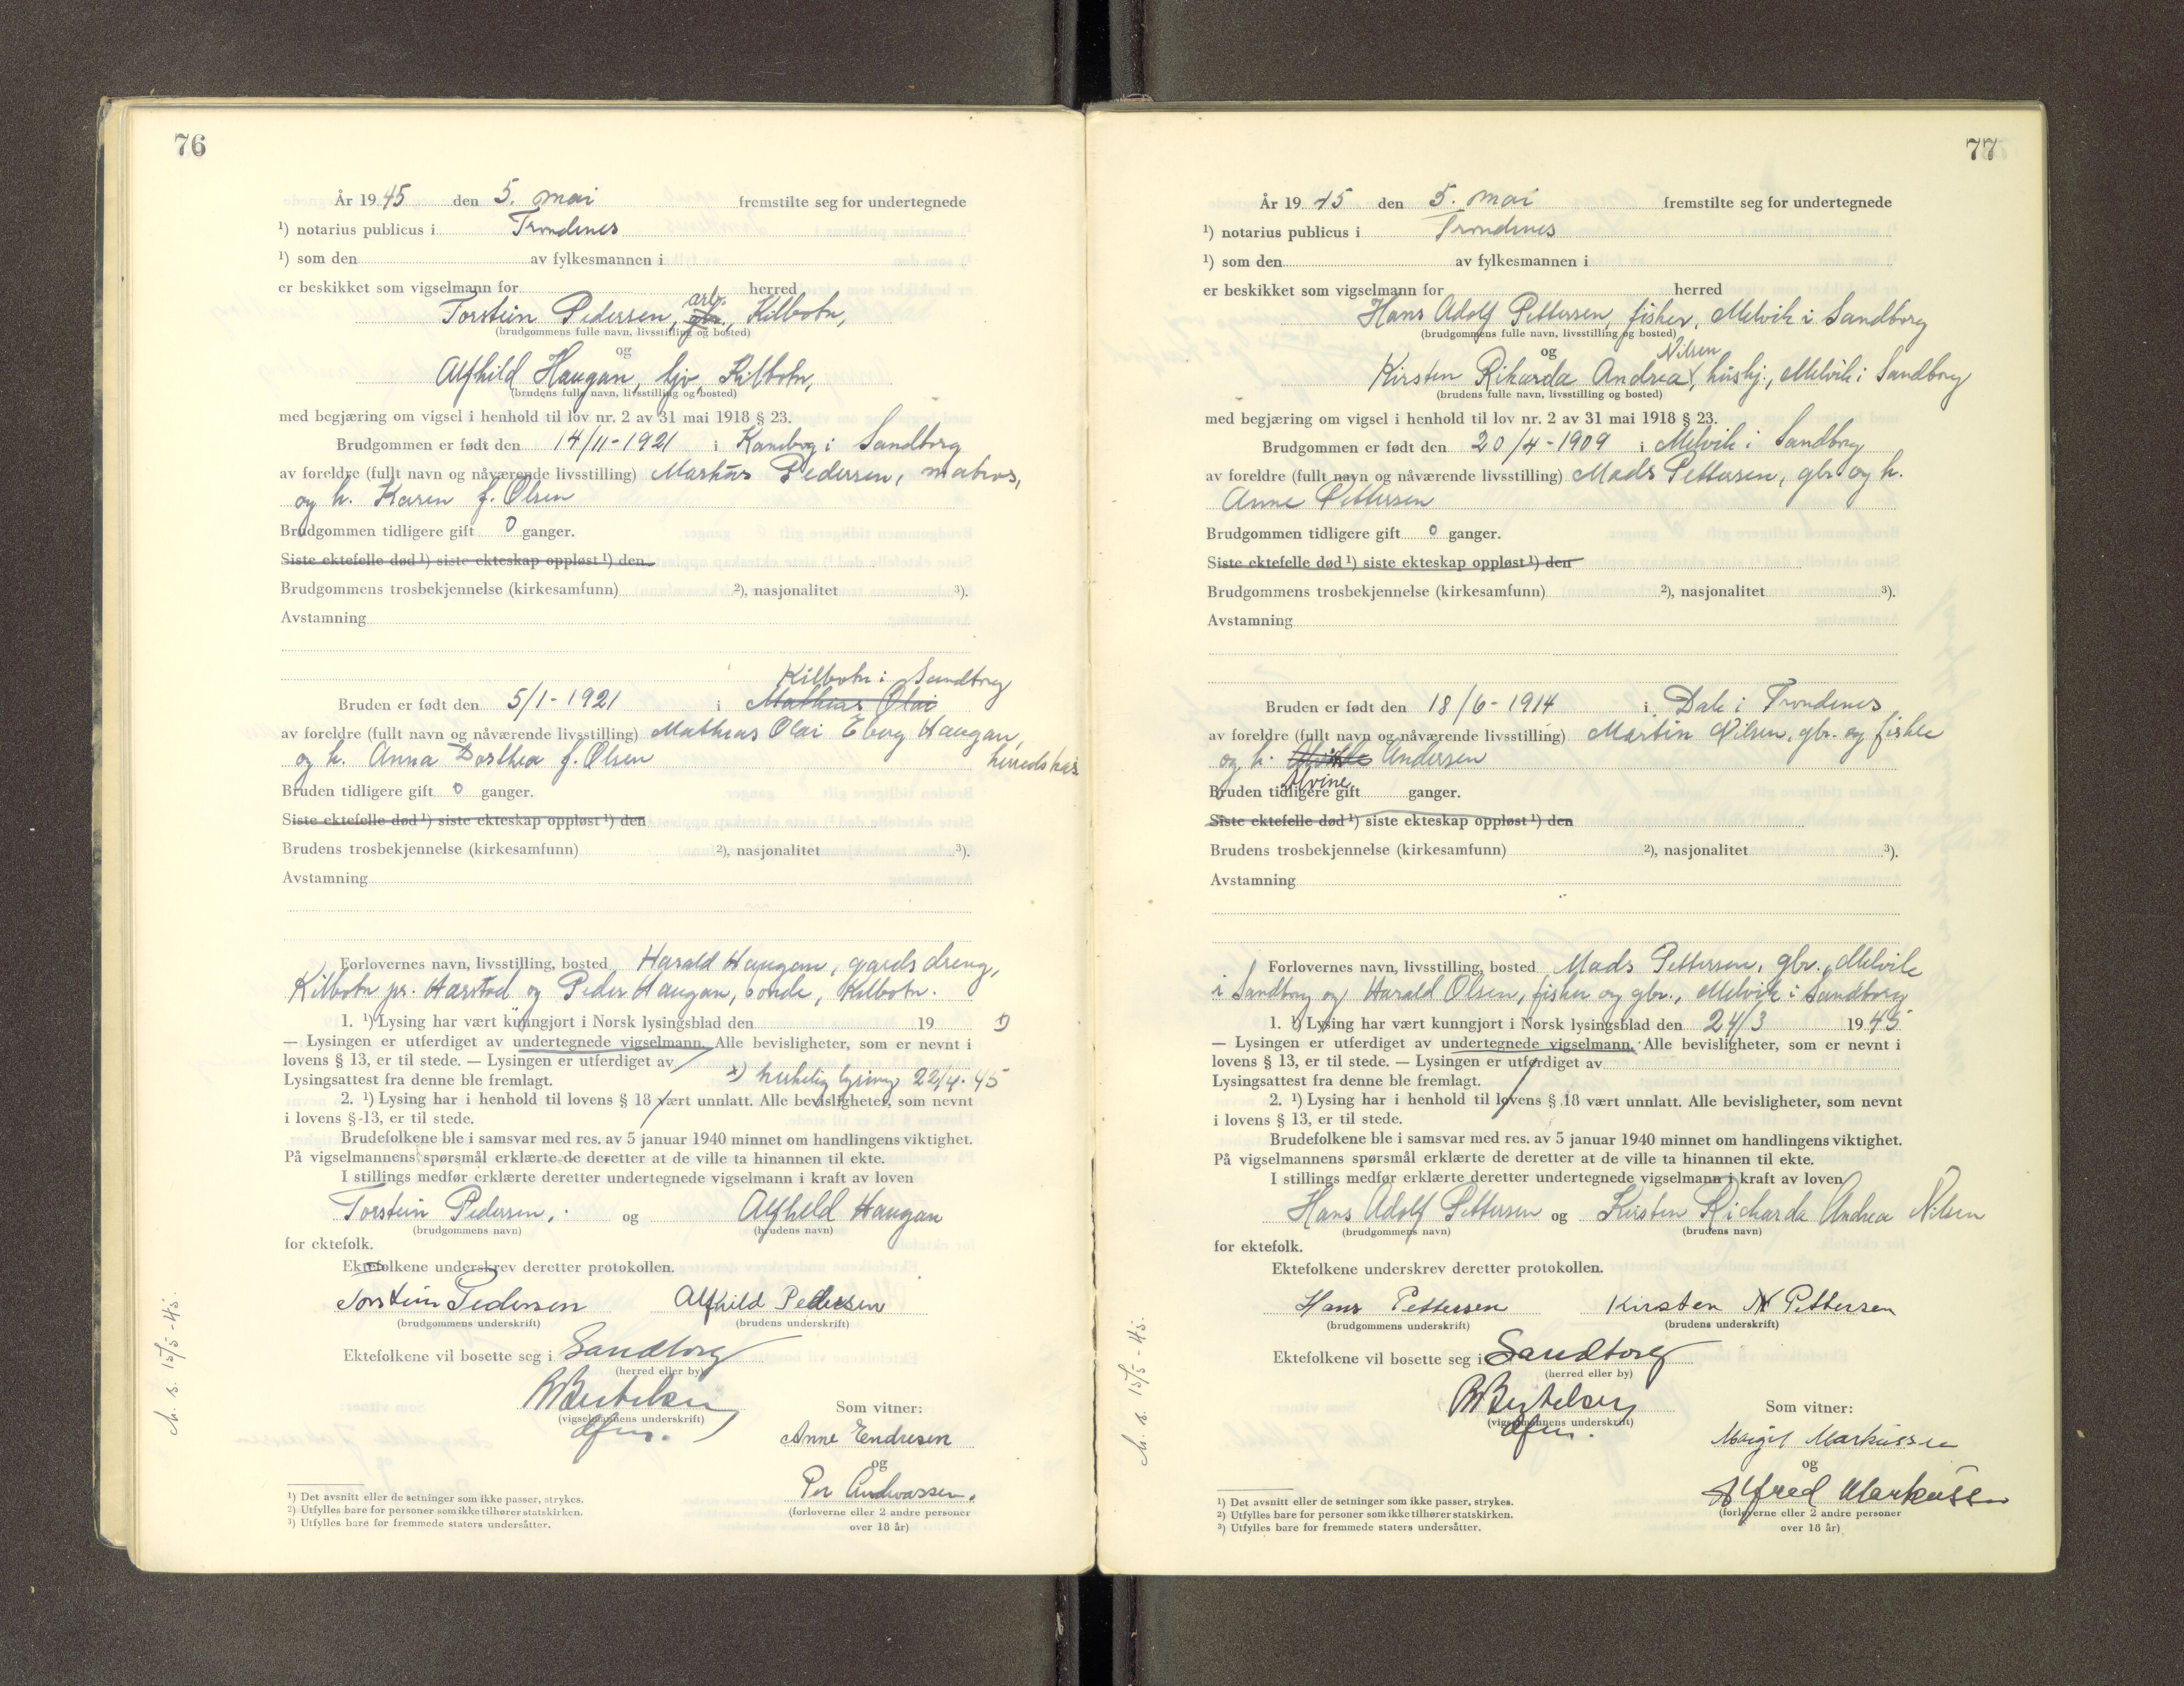 76
År 1945 den 5. mai fremstilte seg for undertegnede
¹) notarius publicus i Trondenes
¹) som den av fylkesmannen i
er beskikket som vigselmann for herred
arb.
Torstein Pedersen, gbr., Kilbotn,
(brudgommens fulle navn, livsstilling og bosted)
og
Alfhild Haugan, hjv, Kilbotn,
(brudens fulle navn, livsstilling og bosted)
med begjæring om vigsel i henhold til lov nr. 2 av 31 mai 1918 § 23.
Brudgommen er født den 14/11-1921 i Kanebog i Sandtorg
av foreldre (fullt navn og nåværende livsstilling) Markus Pedersen, matros,
og h. Karen f. Olsen
Brudgommen tidligere gift 0 ganger.
Siste ektefelle død ¹) siste ekteskap oppløst ¹) den
Brudgommens trosbekjennelse (kirkesamfunn) ²), nasjonalitet ³).
Avstamning
Kilbotn i Sandtorg
Bruden er født den 5/1-1921 i Mathias Olai
av foreldre (fullt navn og nåværende livsstilling) Mathias Olai Eberg Haugan,
og h. Anna Dorthea f. Olsen herredskas
Bruden tidligere gift 0 ganger.
Siste ektefelle død ¹) siste ekteskap oppløst ¹) den
Brudens trosbekjennelse (kirkesamfunn) ²), nasjonalitet ³).
Avstamning
Forlovernes navn, livsstilling, bosted Harald Haugan, gardsdreng,
Kilbotn pr. Harstad og Peder Haugan, bonde, Kilbotn.
1. ¹) Lysing har vært kunngjort i Norsk lysingsblad den 19
— Lysingen er utferdiget av undertegnede vigselmann. Alle bevisligheter, som er nevnt i
lovens § 13, er til stede. — Lysingen er utferdiget av
Lysingsattest fra denne ble fremlagt. kirkelig lysing 22/4-45
2. ¹) Lysing har i henhold til lovens § 18 vært unnlatt. Alle bevisligheter, som nevnt
i lovens § 13, er til stede.
Brudefolkene ble i samsvar med res. av 5 januar 1940 minnet om handlingens viktighet.
På vigselmannens spørsmål erklærte de deretter at de ville ta hinannen til ekte.
I stillings medfør erklærte deretter undertegnede vigselmann i kraft av loven
Torstein Pedersen, og Alfhild Haugan
(brudgommens navn) (brudens navn)
for ektefolk.
Ektefolkene underskrev deretter protokollen.
Torstein Pedersen Alfhild Pedersen
(brudgommens underskrift) (brudens underskrift)
Ektefolkene vil bosette seg i Sandtorg
(herred eller by)
Bertelsen
(vigselmannens underskrift)
dfm.
Som vitner:
Anne Endresen
og
Per Andreassen.
(forloverne eller 2 andre personer
over 18 år)
¹) Det avsnitt eller de setninger som ikke passer, strykes.
²) Utfylles bare for personer som ikke tilhører statskirken.
³) Utfylles bare for fremmede staters undersåtter.
M. s. 15/5-45.
77
År 1945 den 5. mai fremstilte seg for undertegnede
¹) notarius publicus i Trondenes
¹) som den av fylkesmannen i
er beskikket som vigselmann for herred
Hans Adolf Pettersen, fisker, Melvik i Sandtorg
(brudgommens fulle navn, livsstilling og bosted)
og Nilsen
Kirsten Rikarda Andrea, hushj., Melvik i Sandtorg
(brudens fulle navn, livsstilling og bosted)
med begjæring om vigsel i henhold til lov nr. 2 av 31 mai 1918 § 23.
Brudgommen er født den 20/4-1909 i Melvik i Sandtorg
av foreldre (fullt navn og nåværende livsstilling) Mads Pettersen, gbr. og h.
Anne Pettersen
Brudgommen tidligere gift 0 ganger.
Siste ektefelle død ¹) siste ekteskap oppløst ¹) den
Brudgommens trosbekjennelse (kirkesamfunn) ²), nasjonalitet ³).
Avstamning
Bruden er født den 18/6-1914 i Dale i Trondenes
av foreldre (fullt navn og nåværende livsstilling) Martin Nilsen, gbr. og fisker
og h. Andersen
Alvine
Bruden tidligere gift ganger.
Siste ektefelle død ¹) siste ekteskap oppløst ¹) den
Brudens trosbekjennelse (kirkesamfunn) ²), nasjonalitet ³).
Avstamning
Forlovernes navn, livsstilling, bosted Mads Pettersen, gbr., Melvik
i Sandtorg og Harald Olsen, fisker og gbr., Melvik i Sandtorg
1. ¹) Lysing har vært kunngjort i Norsk lysingsblad den 24/3 1945
— Lysingen er utferdiget av undertegnede vigselmann. Alle bevisligheter, som er nevnt i
lovens § 13, er til stede. — Lysingen er utferdiget av
Lysingsattest fra denne ble fremlagt.
2. ¹) Lysing har i henhold til lovens § 18 vært unnlatt. Alle bevisligheter, som nevnt
i lovens § 13, er til stede.
Brudefolkene ble i samsvar med res. av 5 januar 1940 minnet om handlingens viktighet.
På vigselmannens spørsmål erklærte de deretter at de ville ta hinannen til ekte.
I stillings medfør erklærte deretter undertegnede vigselmann i kraft av loven
Hans Adolf Pettersen og Kirsten Richarda Andrea Nilsen
(brudgommens navn) (brudens navn)
for ektefolk.
Ektefolkene underskrev deretter protokollen.
Hans Pettersen Kirsten N Pettersen
(brudgommens underskrift) (brudens underskrift)
Ektefolkene vil bosette seg i Sandtorg
(herred eller by)
Bertelsen
(vigselmannens underskrift)
dfm.
Som vitner:
Margit Markussen
og
Alfred Markussen
(forloverne eller 2 andre personer
over 18 år)
¹) Det avsnitt eller de setninger som ikke passer, strykes.
²) Utfylles bare for personer som ikke tilhører statskirken.
³) Utfylles bare for fremmede staters undersåtter.
M. s. 15/5-45.